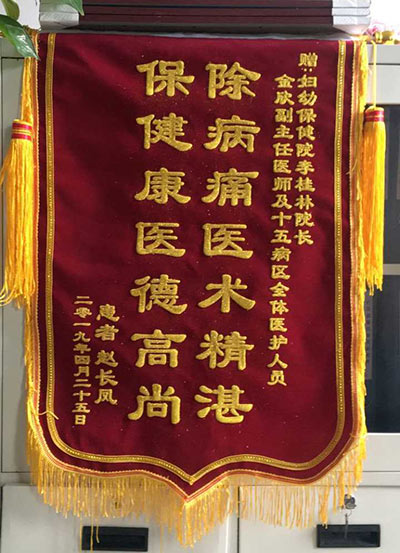 赠:妇幼保健院李桂林院长
金欣副主任医师及十五病区全体医护人员
除病痛医术精湛
保健康医德高尚
患者 赵长凤
二零一九年四月二十五日